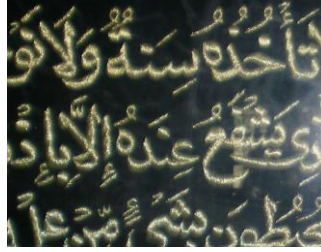 تَأْخُذُهُ سِنَةٌ وَلَا نَوْ
ذِى يَشْفَعُ عِندَهُ إِلَّا بِإِذْ
يطُونَ بِشَىْءٍ مِّنْ عِلْ